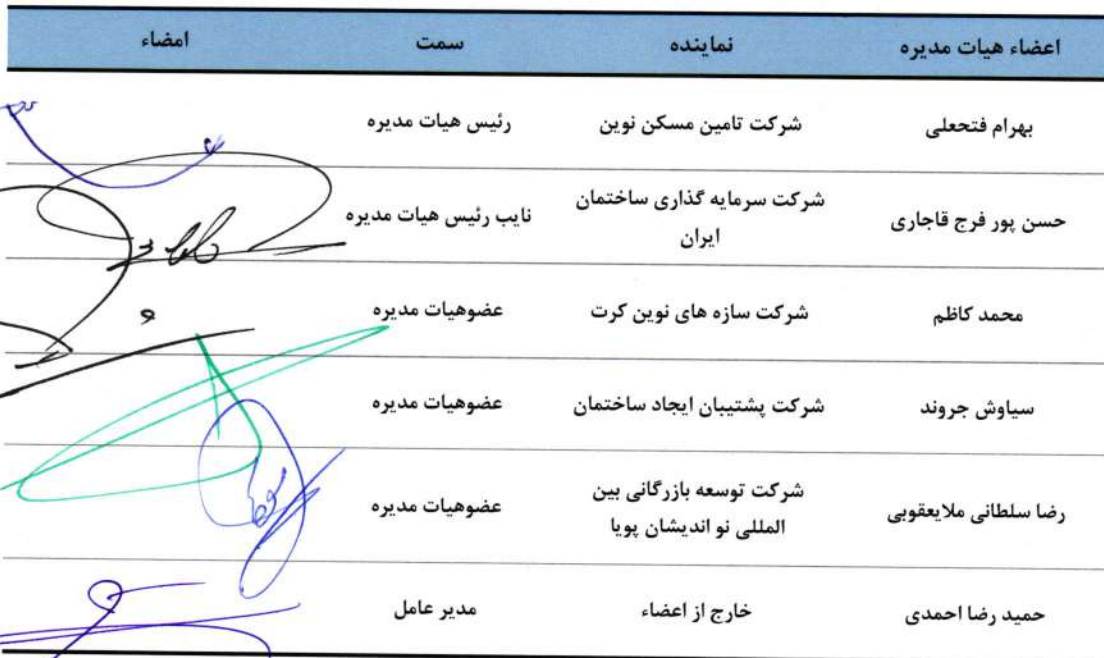 اعضاء هیات مدیره نماینده سمت امضاء
بهرام فتحعلی شرکت تامین مسکن نوین رئیس هیات مدیره
حسن پور فرج قاجاری شرکت سرمایه گذاری ساختمان ایران نایب رئیس هیات مدیره
محمد کاظم شرکت سازه های نوین کرت عضوهیات مدیره
سیاوش جروند شرکت پشتیبان ایجاد ساختمان عضوهیات مدیره
رضا سلطانی ملایعقوبی شرکت توسعه بازرگانی بین المللی نو اندیشان پویا عضوهیات مدیره
حمید رضا احمدی خارج از اعضاء مدیر عامل